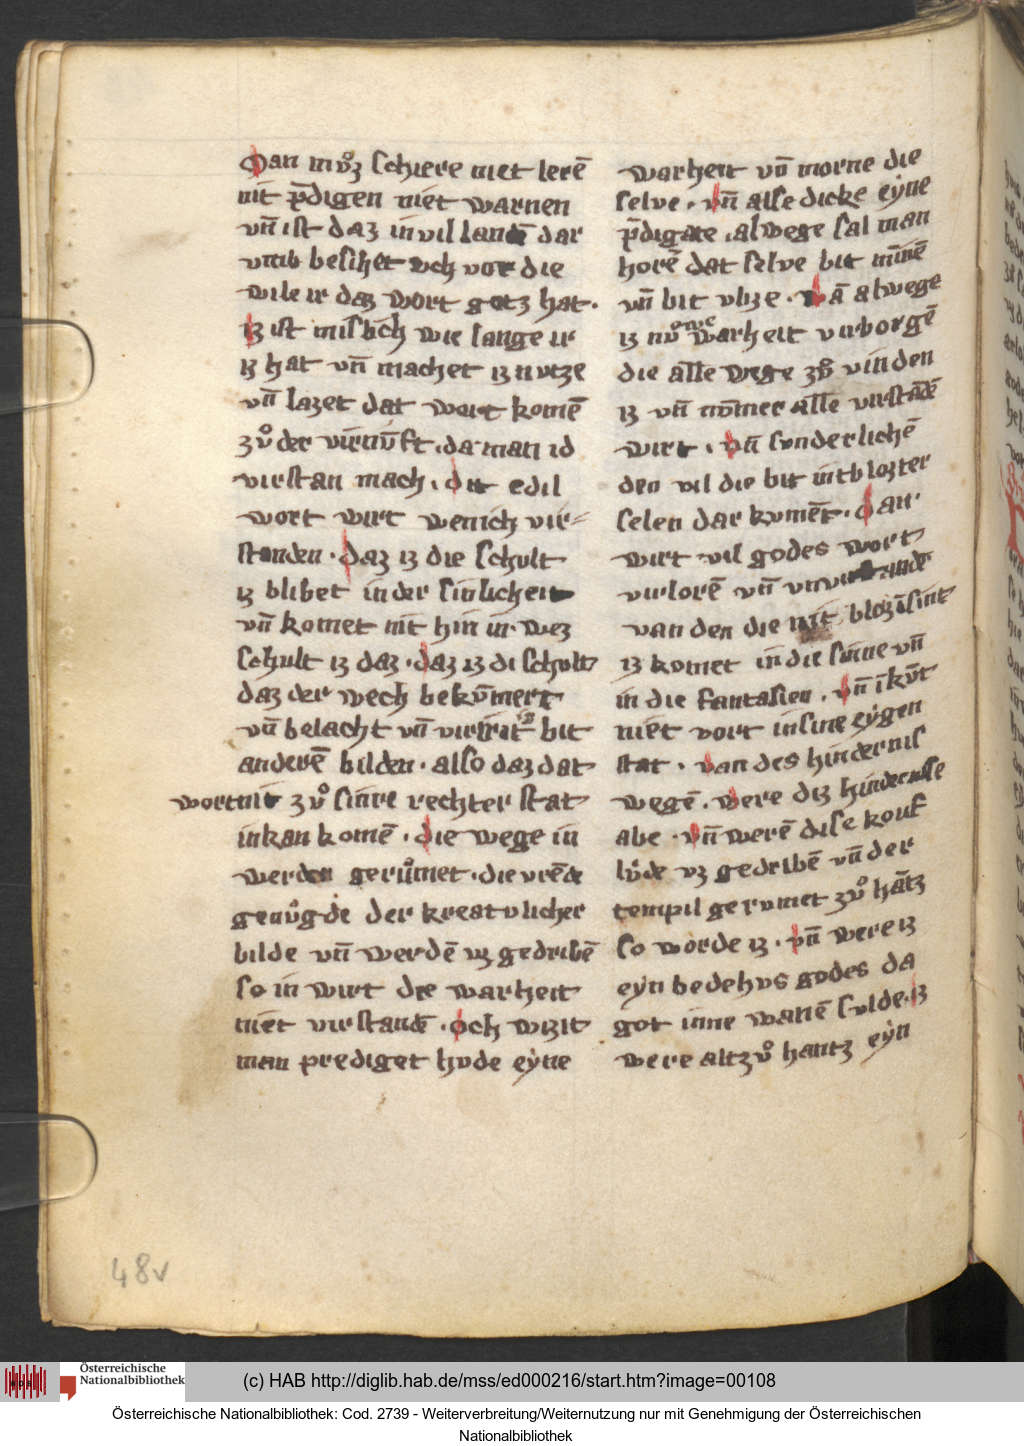 Man můz schiere niet lerē
nit p̄digen niet warnen
vn̄ ist daz in vil landē dar
vmb besihet och vor die
wile ir daz wort gotz hat.
iz ist mislich wie lange ir
iz hat vn̄ machet iz nutze
vn̄ lazet dat wort komē
zů der virnūft. da man id
virstan mach. dit edil
wort wirt wenich vir⸗
standen. daz iz die schult
iz blibet in der sinlicheit
vn̄ komet nit hin in. wez
schult iz daz. daz iz di schult
daz der wech bekūmert
vn̄ belacht vn̄ viririt bit
anderē bilden. also daz dat
wort nit zů sinre rechter stat
inkan komē. die wege in
werden gerůmet. die vrēde
genůgde der kreatulicher
bilde vn̄ werdē uz gedribē
so in wirt die warheit
niet virstandē. och wizit
man prediget hude eẏne
warheit vn̄ morne die
selve. vn̄ alse dicke eẏne
p̄digate. alwege sal man
horē dat selve bit minē
vn̄ bit vlize. wā alwege
iz nů eyne warheit virborgē
die alle wege zů vinden
iz vn̄ nōmer alle virstādē
wirt. vn̄ sunderlichē
den vil die bit intblozter
selen dar kumēt. dar
wirt vil godes wort
virlorē vn̄ vnvirstande
van den die nit blozī sint
iz komet in die sinne vn̄
in die fantasien. vn̄ īkūt
niet vort in sine eẏgen
stat. van des hindernis
wegē. were diz hindernisse
abe. vn̄ werē dise kouf
lude uz gedribē vn̄ der
tempil gerumet zů hātz
so worde iz. vn̄ were iz
eyn bedehus godes da
got inne wanē sulde. iz
were altzů hantz eẏn
48v
Österreichische
Nationalbibliothek
(c) HAB http://diglib.hab.de/mss/ed000216/start.htm?image=00108
Österreichische Nationalbibliothek: Cod. 2739 - Weiterverbreitung/Weiternutzung nur mit Genehmigung der Österreichischen
Nationalbibliothek